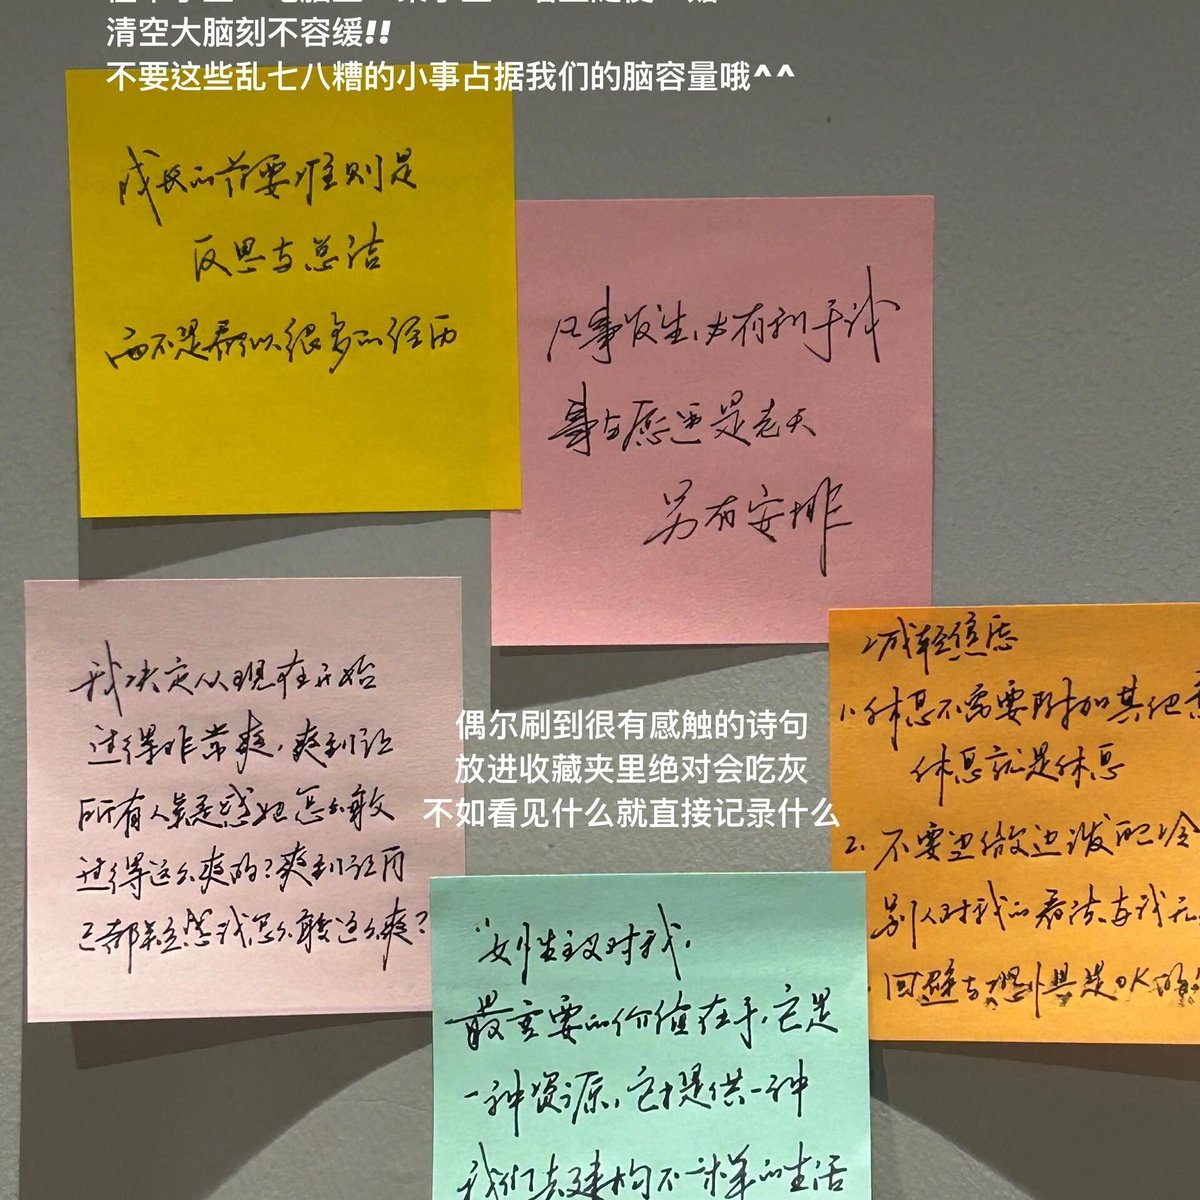 清空大脑刻不容缓!!
不要这些乱七八糟的小事占据我们的脑容量哦^^
成长的首要准则是
反思与总结
而不是看似很多的经历
凡事发生，必有利于我
事与愿违是老天
另有安排
我决定从现在开始
过得非常爽，爽到让
所有人羡慕她怎么敢
过得这么爽的？爽到让
己都羡慕我怎么敢这么爽？
偶尔刷到很有感触的诗句
放进收藏夹里绝对会吃灰
不如看见什么就直接记录什么
减轻焦虑
1. 休息不需要附加其他
休息就是休息
2. 不要边做边泼
别人对我的看法与我无
回避与恐惧是OK的
"女性主义对我，
最重要的价值在于，它是
一种资源，它提供一种
我们去建构不一样的生活